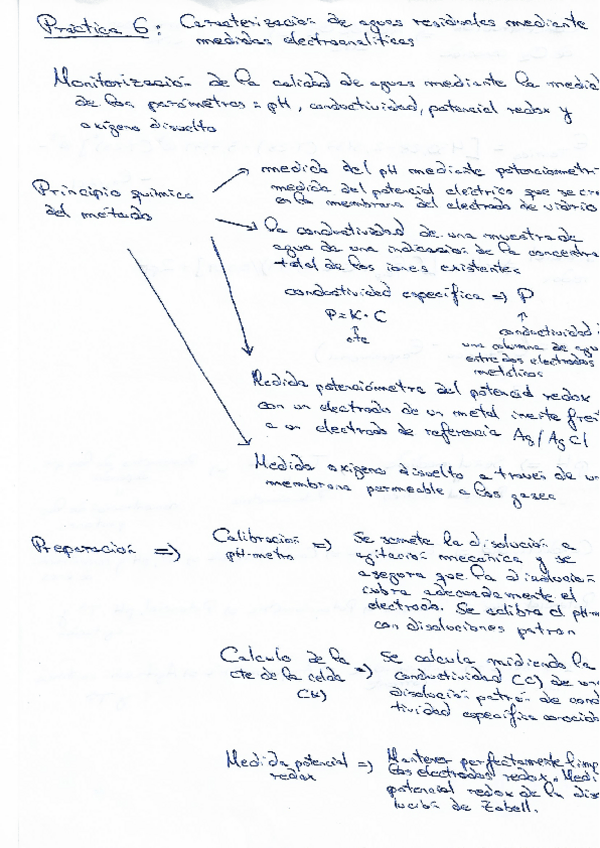 Práctica 6: Caracterización de aguas residuales mediante
medidas electroanalíticas
Monitorización de la calidad de aguas mediante la medid
de los parámetros = pH, conductividad, potencial redox y
oxígeno disuelto
Principio químico
del método
medida del pH mediante potenciometrí
medida del potencial eléctrico que se cr
en la membrana del electrodo de vidrio
la conductividad de una muestra de
agua da una indicación de la concentra
total de los iones existentes
conductividad específica => P
P = K · C
cte
conductividad
una columna de agu
entre dos electrodos
metálicos
Medida potenciómetra del potencial redox
con un electrodo de un metal inerte fren
a un electrodo de referencia Ag/AgCl
Medida oxígeno disuelto a través de u
membrana permeable a los gases
Preparación =>
Calibración =>
pH-metro
Se somete la disolución a
agitación mecánica y se
asegora que la disolución
cubra adecuadamente el
electrodo. Se calibra el pH-m
con disoluciones patron
Calculo de la =>
cte de la celda
(K)
Se calcula midiendo la
conductividad (C) de un
disolución patrón de cond
tividad específica conocid
Medida potencial =>
redox
Mantener perfectamente limp
los electrodos redox. Medi
potencial redox de la dis
lución de Zobell.